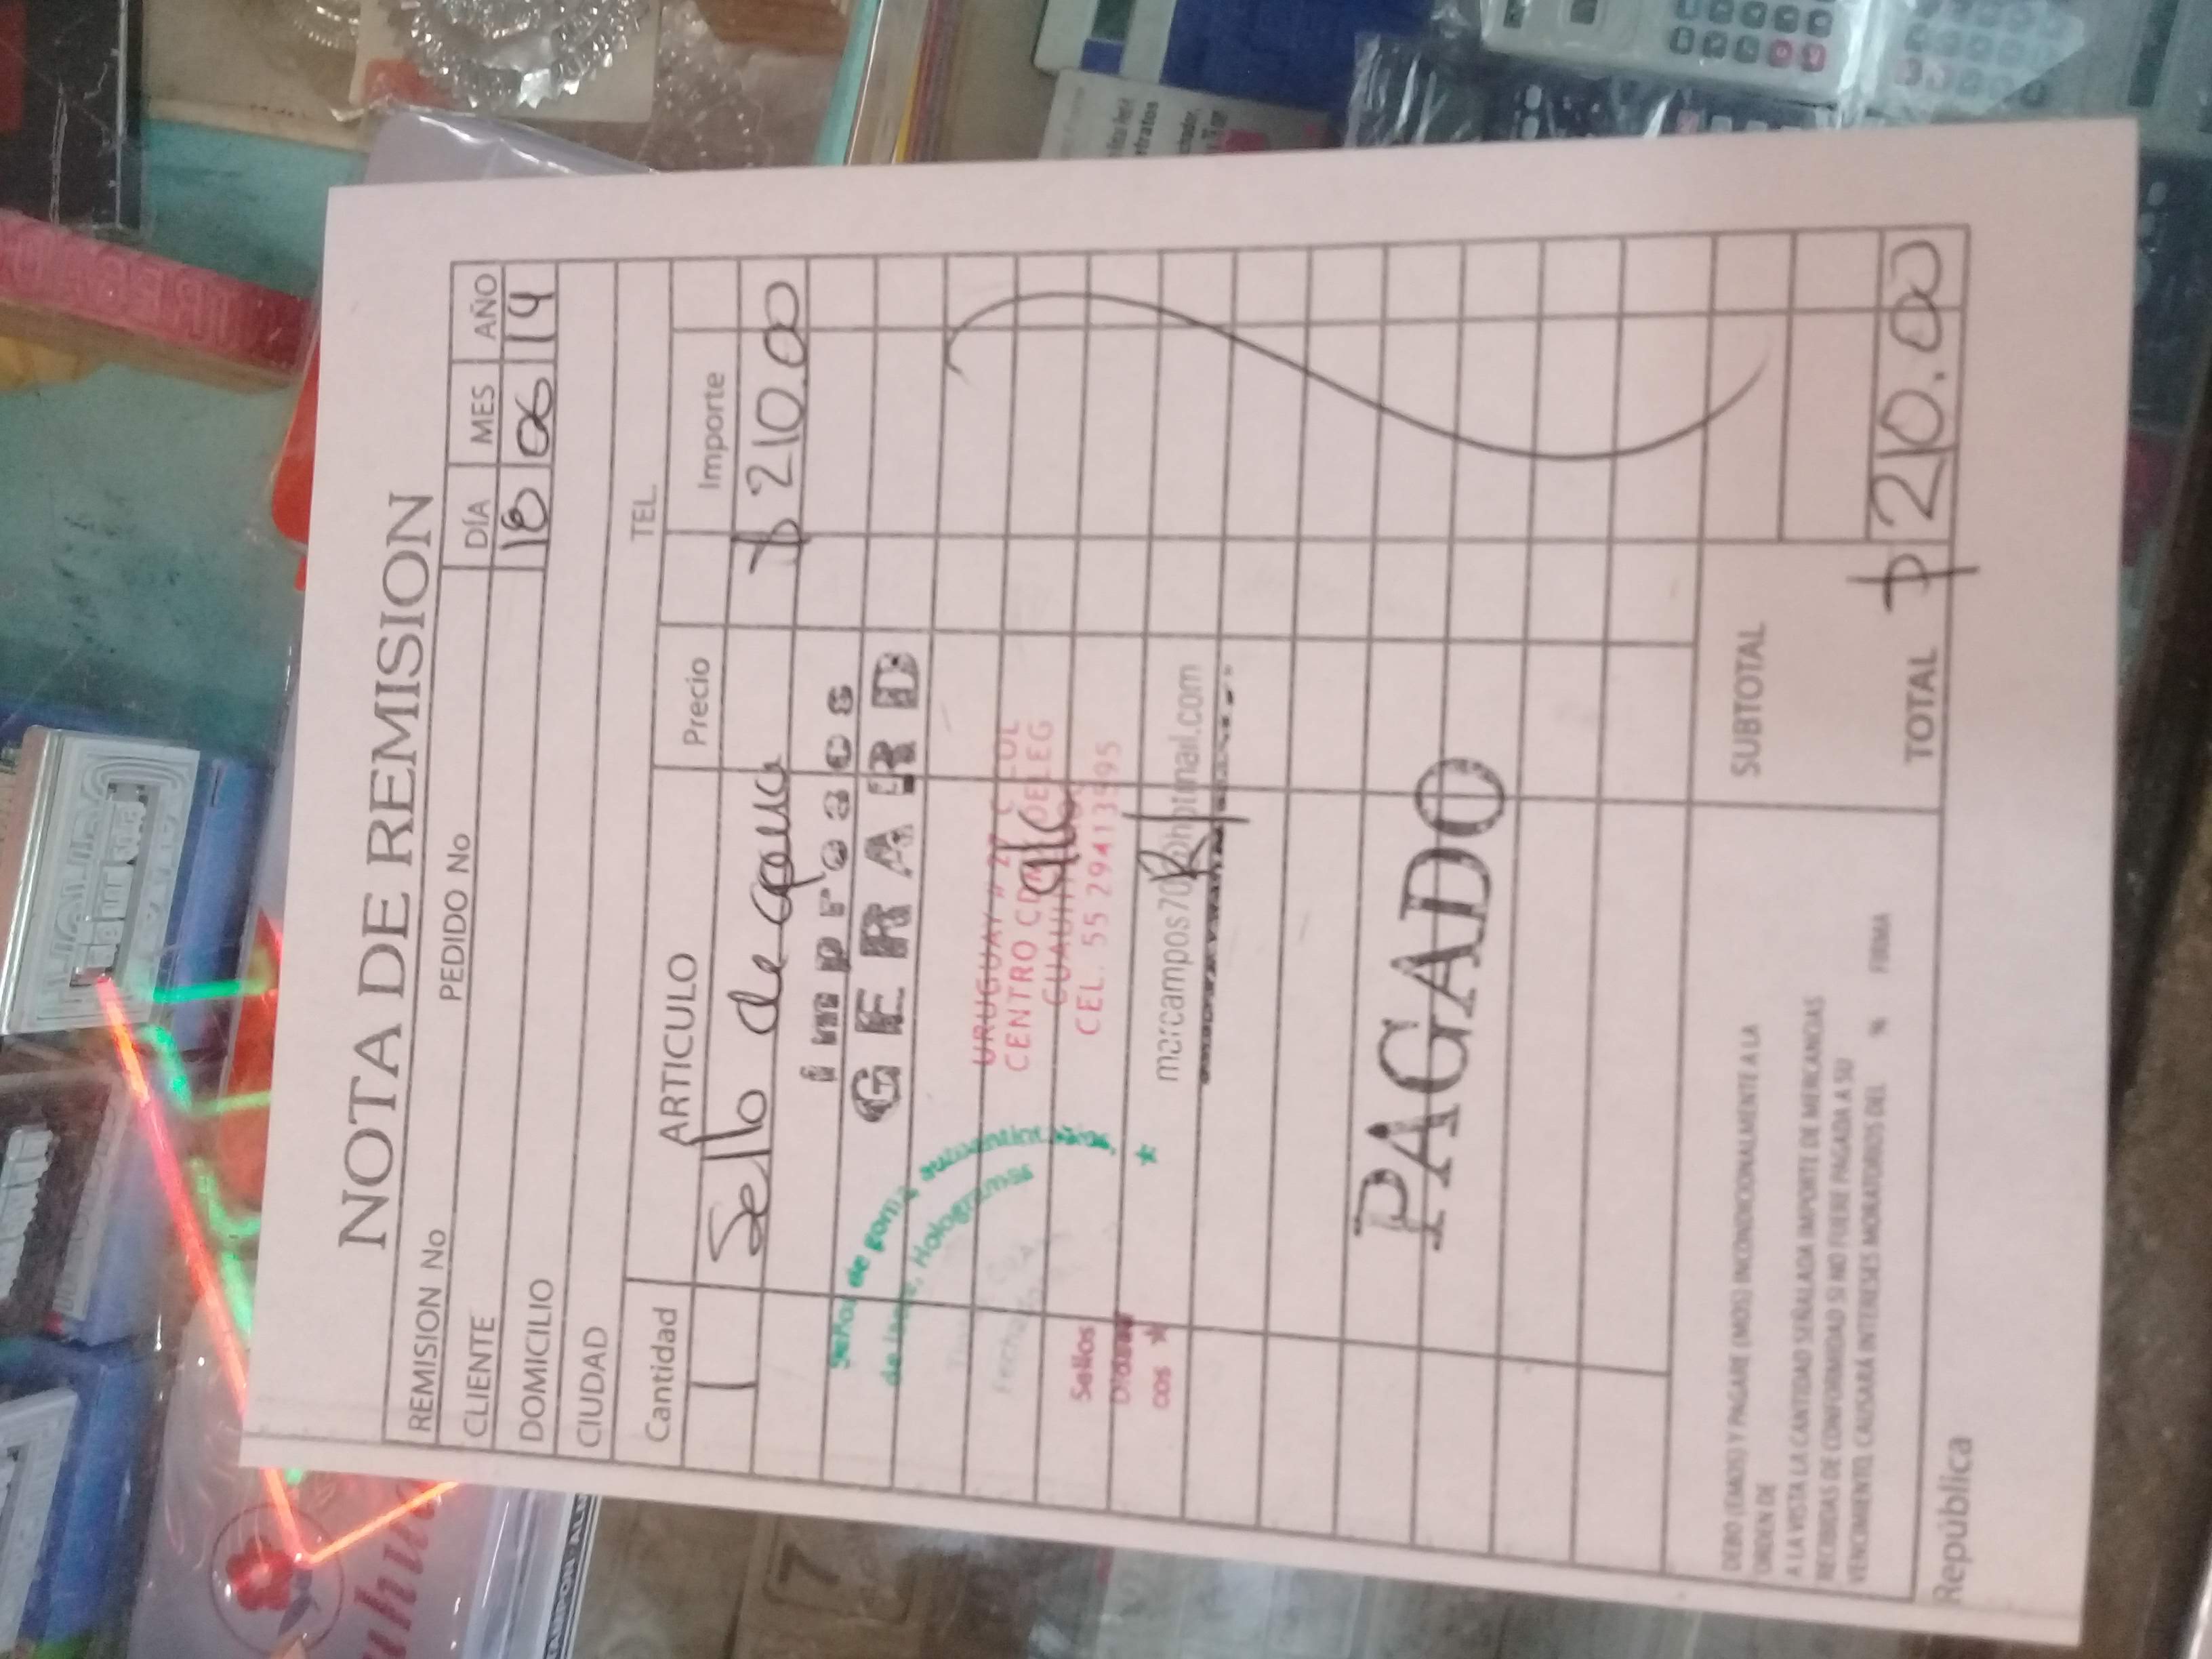 NOTA DE REMISION
REMISION No PEDIDO No
DÍA MES AÑO
CLIENTE
18 06 19
DOMICILIO
CIUDAD
TEL.
Cantidad ARTICULO Precio Importe
1 Sello de goma $210.00
impresos
GERARD
Sellos de goma
de lacre, Hologramas
Sellos
cos ★
URUGUAY # 27 C COL
CENTRO CDMX DELEG
CEL. 55 29413595
a/c
R/
PAGADO
DEBO (EMOS) Y PAGARE (MOS) INCONDICIONALMENTE A LA
ORDEN DE
A LA VISTA LA CANTIDAD SEÑALADA IMPORTE DE MERCANCIAS
RECIBIDAS DE CONFORMIDAD SI NO FUERE PAGADA A SU
VENCIMIENTO, CAUSARÁ INTERESES MORATORIOS DEL % FIRMA
SUBTOTAL
TOTAL $210.00
República